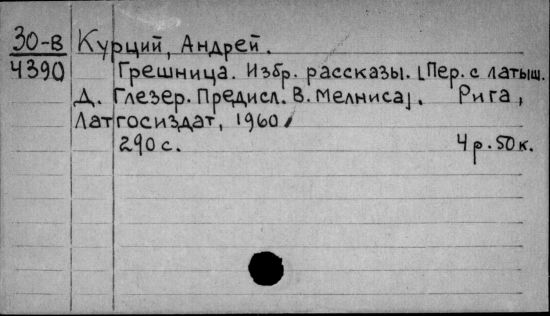 30-В Курций, Андрей.
4390 Грешница. Избр. рассказы. [Пер. с латыш.
Д. Глезер. Предисл. В. Мелниса]. Рига,
Латгосиздат, 1960
290 с. 4 р. 50 к.